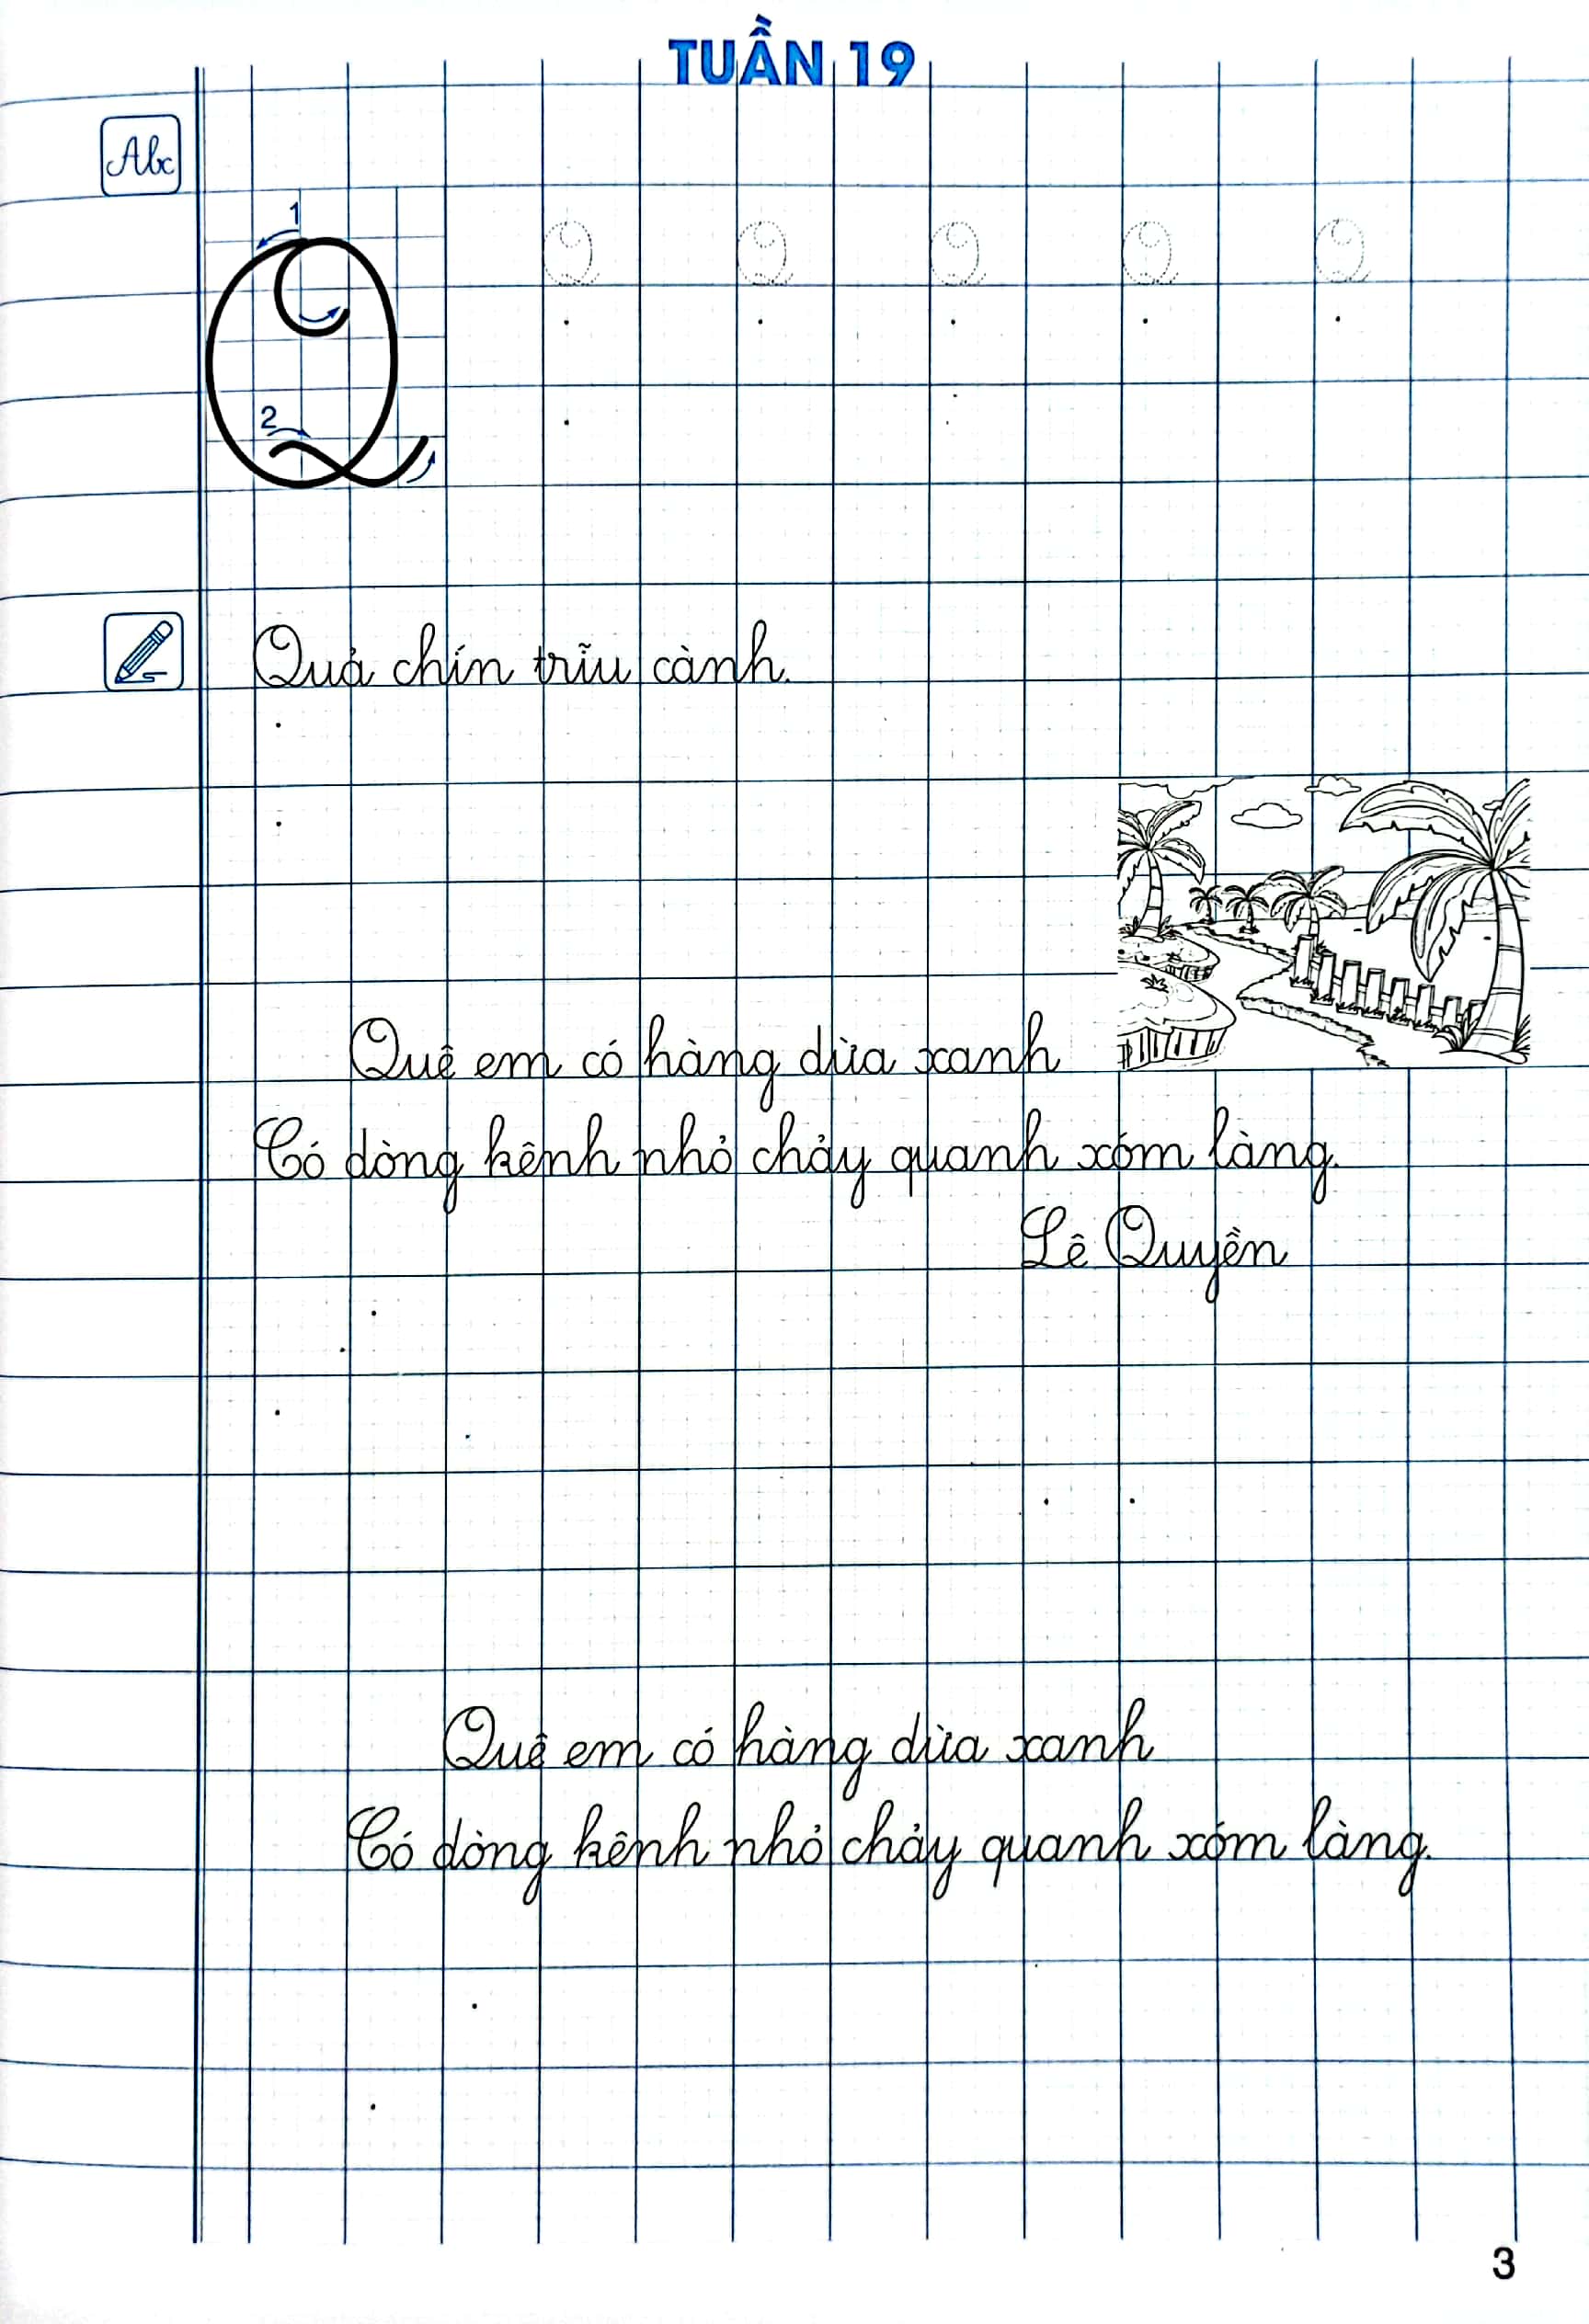 TUẦN 19
Abc
1
2
Q Q Q Q Q Q
Quả chín trĩu cành.
Quê em có hàng dừa xanh
Có dòng kênh nhỏ chảy quanh xóm làng.
Lê Quyền
Quê em có hàng dừa xanh
Có dòng kênh nhỏ chảy quanh xóm làng.
3